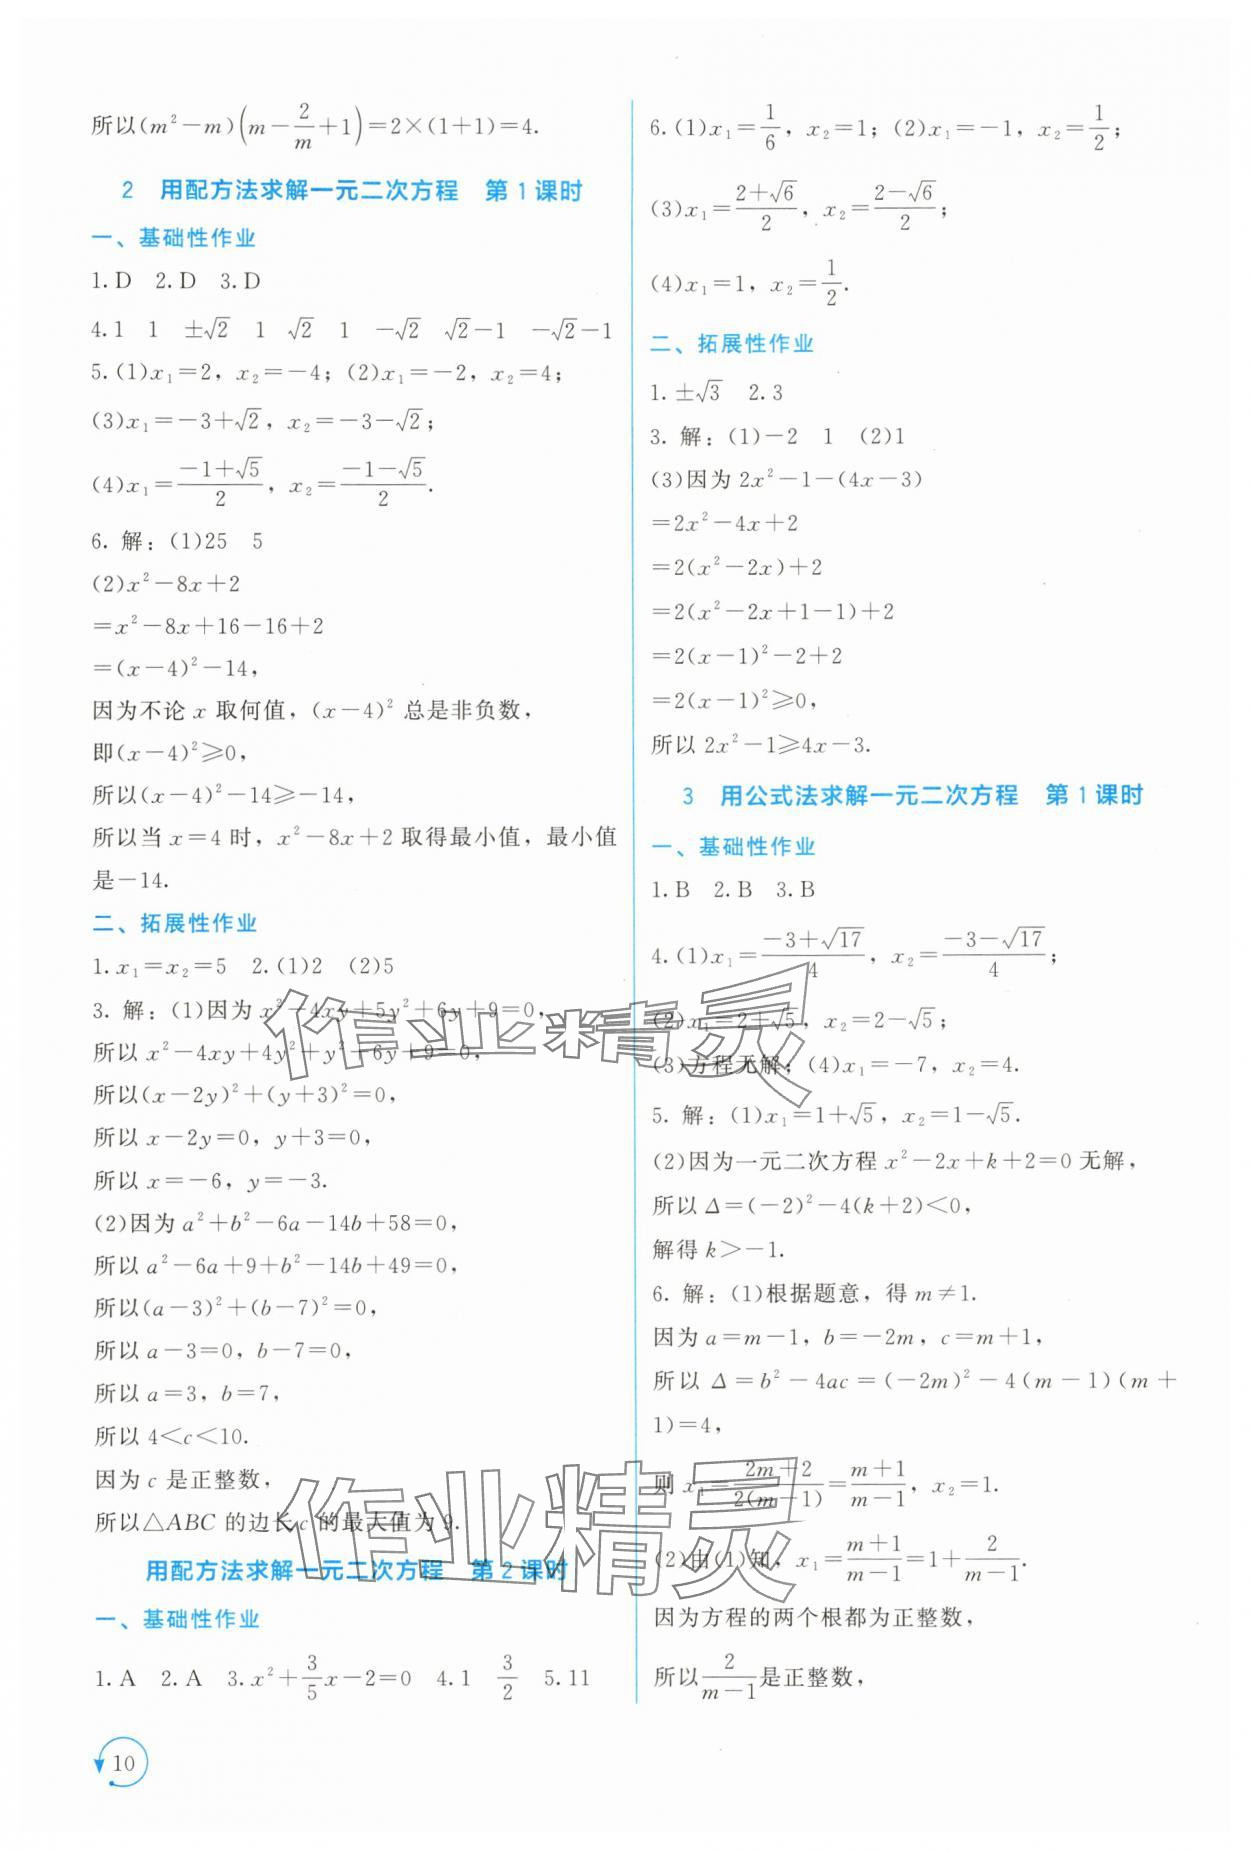 所以(m²－m)(m－2/m＋1)＝2×(1＋1)＝4.
2 用配方法求解一元二次方程 第1课时
一、基础性作业
1.D 2.D 3.D
4.1 1 ±√2 1 √2 1 －√2 √2－1 －√2－1
5.(1)x₁＝2，x₂＝－4；(2)x₁＝－2，x₂＝4；
(3)x₁＝－3＋√2，x₂＝－3－√2；
(4)x₁＝(－1＋√5)/2，x₂＝(－1－√5)/2.
6. 解：(1)25 5
(2)x²－8x＋2
＝x²－8x＋16－16＋2
＝(x－4)²－14，
因为不论 x 取何值，(x－4)² 总是非负数，
即(x－4)²≥0，
所以(x－4)²－14≥－14，
所以当 x＝4 时，x²－8x＋2 取得最小值，最小值
是－14.
二、拓展性作业
1.x₁＝x₂＝5 2.(1)2 (2)5
3. 解：(1)因为 x²－4xy＋5y²＋6y＋9＝0，
所以 x²－4xy＋4y²＋y²＋6y＋9＝0，
所以(x－2y)²＋(y＋3)²＝0，
所以 x－2y＝0，y＋3＝0，
所以 x＝－6，y＝－3.
(2)因为 a²＋b²－6a－14b＋58＝0，
所以 a²－6a＋9＋b²－14b＋49＝0，
所以(a－3)²＋(b－7)²＝0，
所以 a－3＝0，b－7＝0，
所以 a＝3，b＝7，
所以 4＜c＜10.
因为 c 是正整数，
所以△ABC 的边长 c 的最大值为 9.
用配方法求解一元二次方程 第2课时
一、基础性作业
1.A 2.A 3.x²＋3/5x－2＝0 4.1 3/2 5.11
10
6.(1)x₁＝1/6，x₂＝1；(2)x₁＝－1，x₂＝1/2；
(3)x₁＝(2＋√6)/2，x₂＝(2－√6)/2；
(4)x₁＝1，x₂＝1/2.
二、拓展性作业
1.±√3 2.3
3. 解：(1)－2 1 (2)1
(3)因为 2x²－1－(4x－3)
＝2x²－4x＋2
＝2(x²－2x)＋2
＝2(x²－2x＋1－1)＋2
＝2(x－1)²－2＋2
＝2(x－1)²≥0，
所以 2x²－1≥4x－3.
3 用公式法求解一元二次方程 第1课时
一、基础性作业
1.B 2.B 3.B
4.(1)x₁＝(－3＋√17)/4，x₂＝(－3－√17)/4；
(2)x₁＝2＋√5，x₂＝2－√5；
(3)方程无解；(4)x₁＝－7，x₂＝4.
5. 解：(1)x₁＝1＋√5，x₂＝1－√5.
(2)因为一元二次方程 x²－2x＋k＋2＝0 无解，
所以 Δ＝(－2)²－4(k＋2)＜0，
解得 k＞－1.
6. 解：(1)根据题意，得 m≠1.
因为 a＝m－1，b＝－2m，c＝m＋1，
所以 Δ＝b²－4ac＝(－2m)²－4(m－1)(m＋
1)＝4，
则 x₁＝(2m＋2)/(2(m－1))＝(m＋1)/(m－1)，x₂＝1.
(2)由(1)知，x₁＝(m＋1)/(m－1)＝1＋2/(m－1).
因为方程的两个根都为正整数，
所以2/(m－1)是正整数，
作业精灵
作业精灵